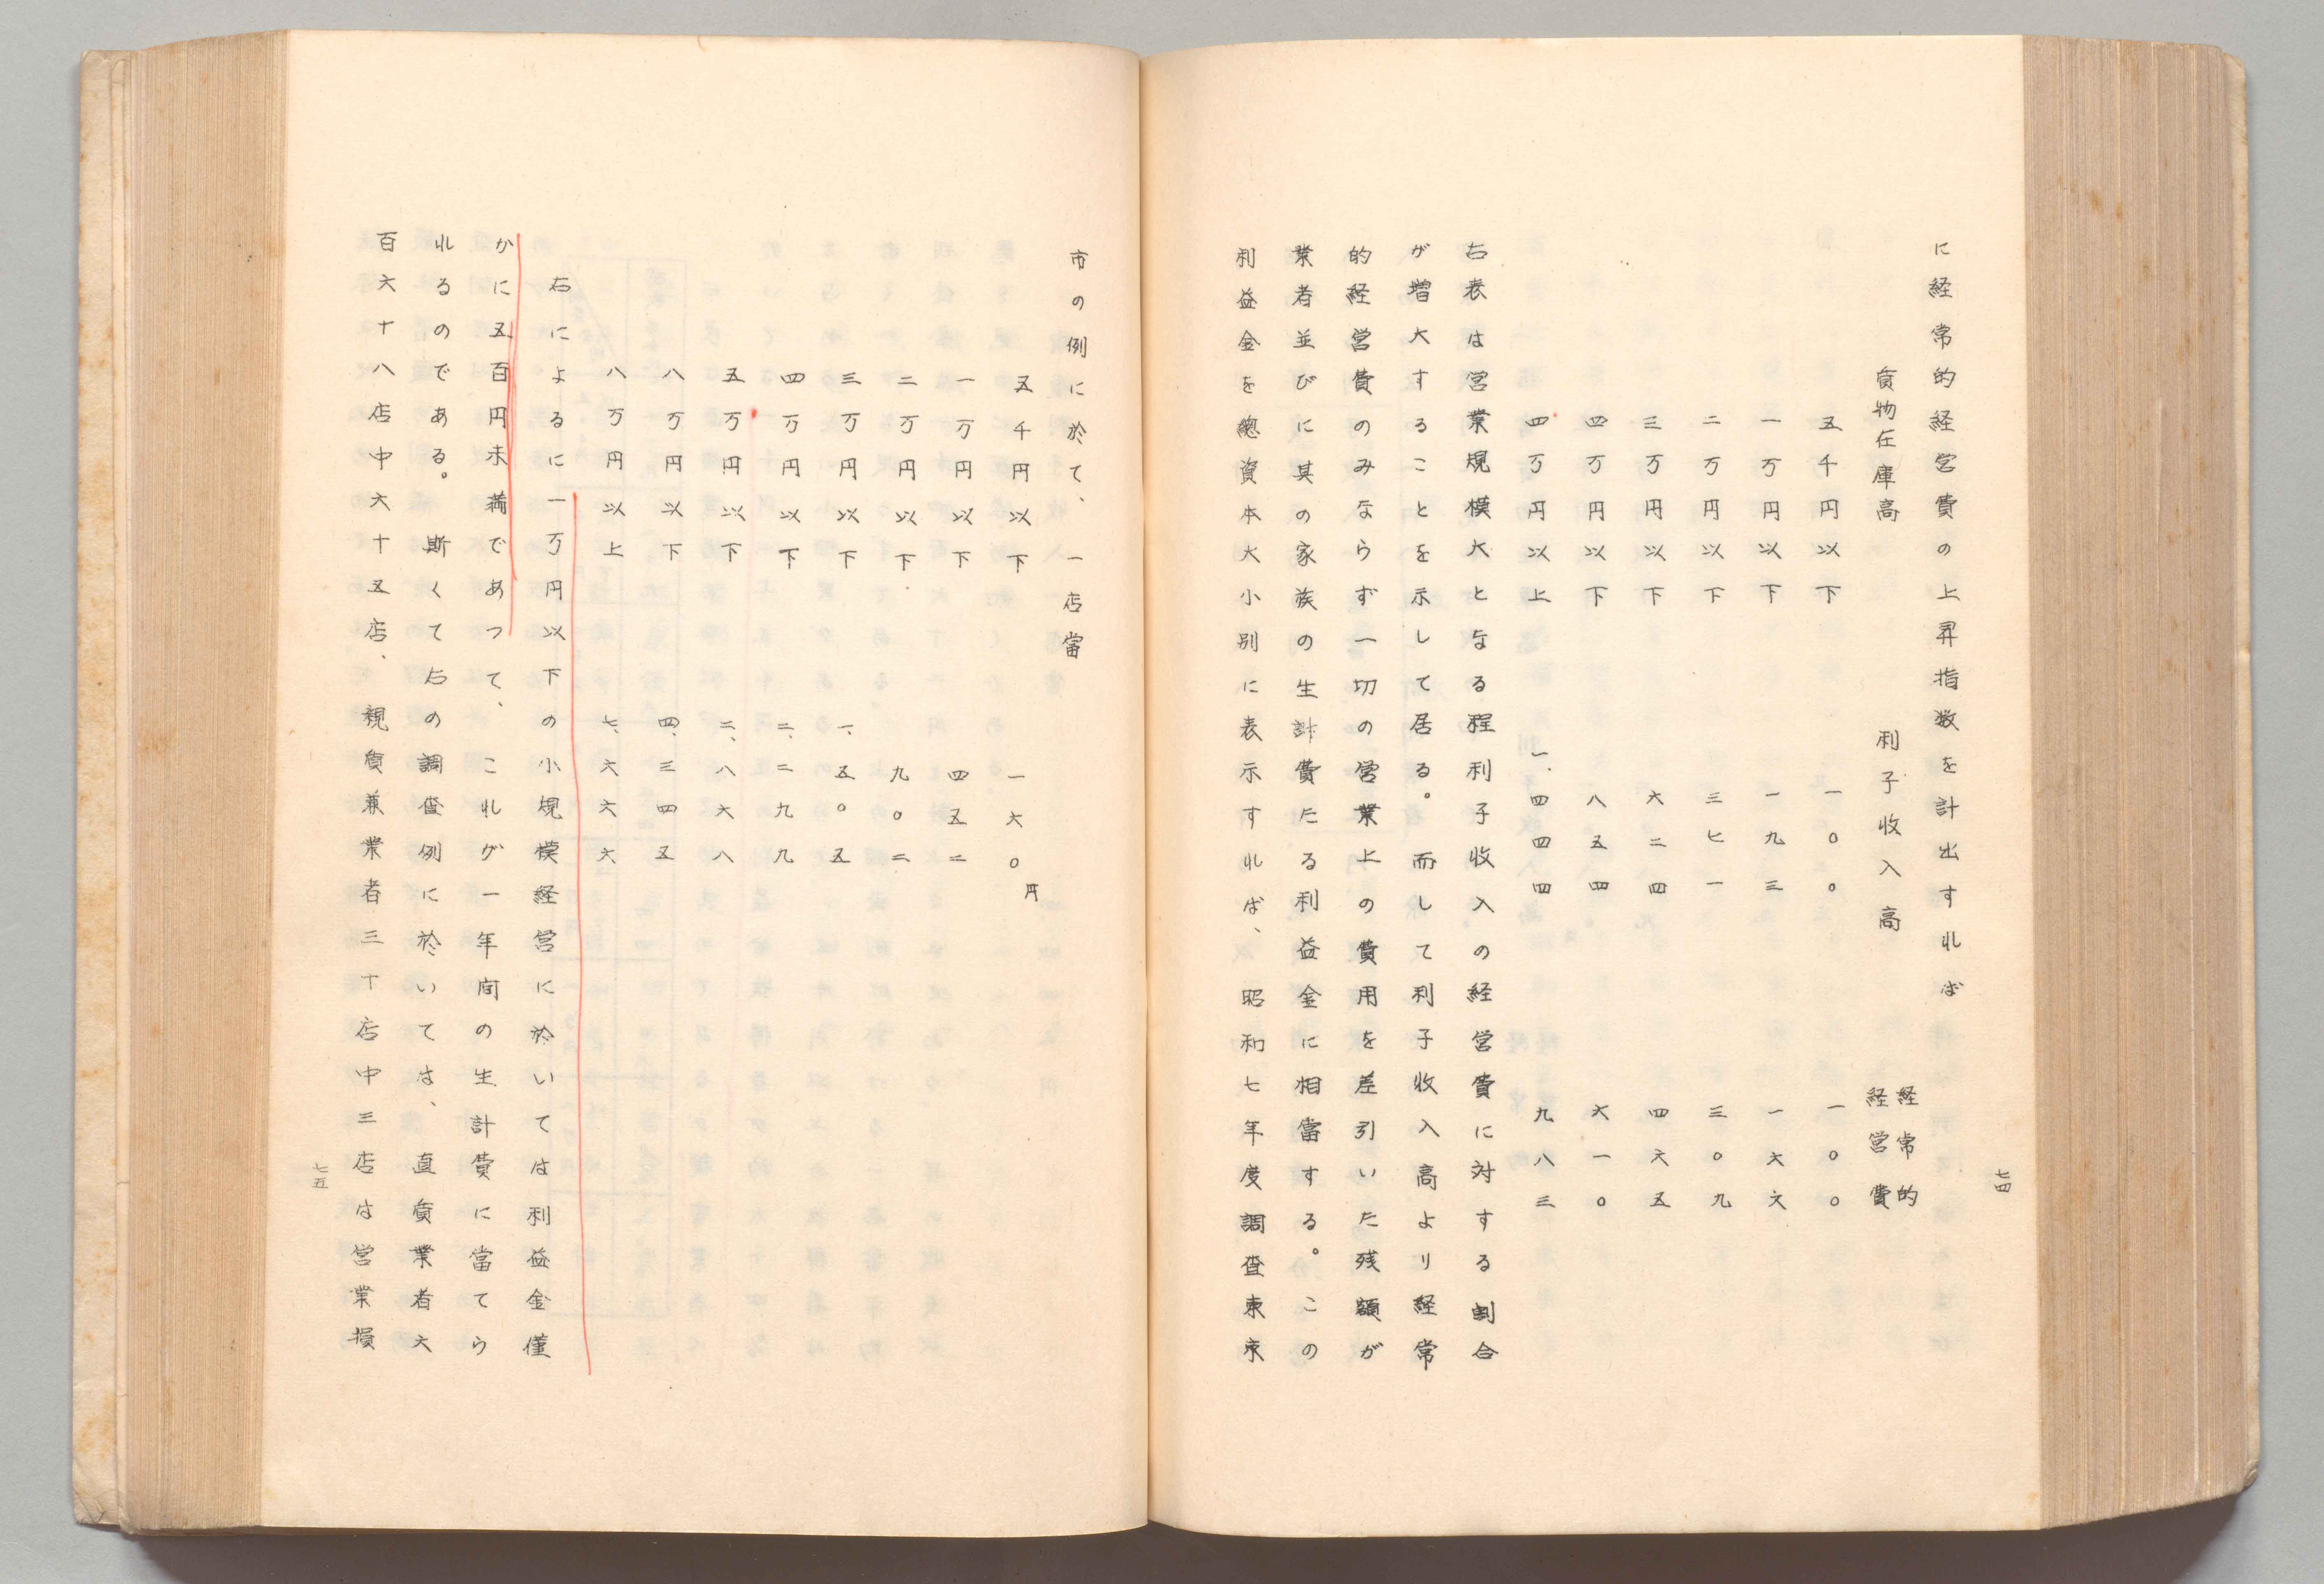 に経常的経営費の上昇指数を計出すれば
質物在庫高　利子収入高　経常的経営費
五千円以下　一〇〇　一〇〇
一万円以下　一九三　一六六
二万円以下　三七一　三〇九
三万円以下　六二四　四六五
四万円以下　八五四　六一〇
四万円以上　一、四四四　九八三
右表は営業規模大となる程利子收入の経営費に対する割合
が増大することを示して居る。而して利子收入高より経常
的経営費のみならず一切の営業上の費用を差引いた残額が
業者並びに其の家族の生計費たる利益金に相當する。この
利益金を總資本大小別に表示すれば、昭和七年度調査東京
七四
市の例に於て、一店當
五千円以下　一六〇円
一万円以下　四五二
二万円以下　九〇二
三万円以下　一、五〇五
四万円以下　二、二九九
五万円以下　二、八六八
八万円以下　四、三四五
八万円以上　七、六六六
右によるに一万円以下の小規模経営に於いては利益金僅
かに五百円未満であつて、これが一年間の生計費に當てら
れるのである。斯くて右の調査例に於いては、直質業者大
百六十八店中六十五店、親質兼業者三十店中三店は営業損
七五